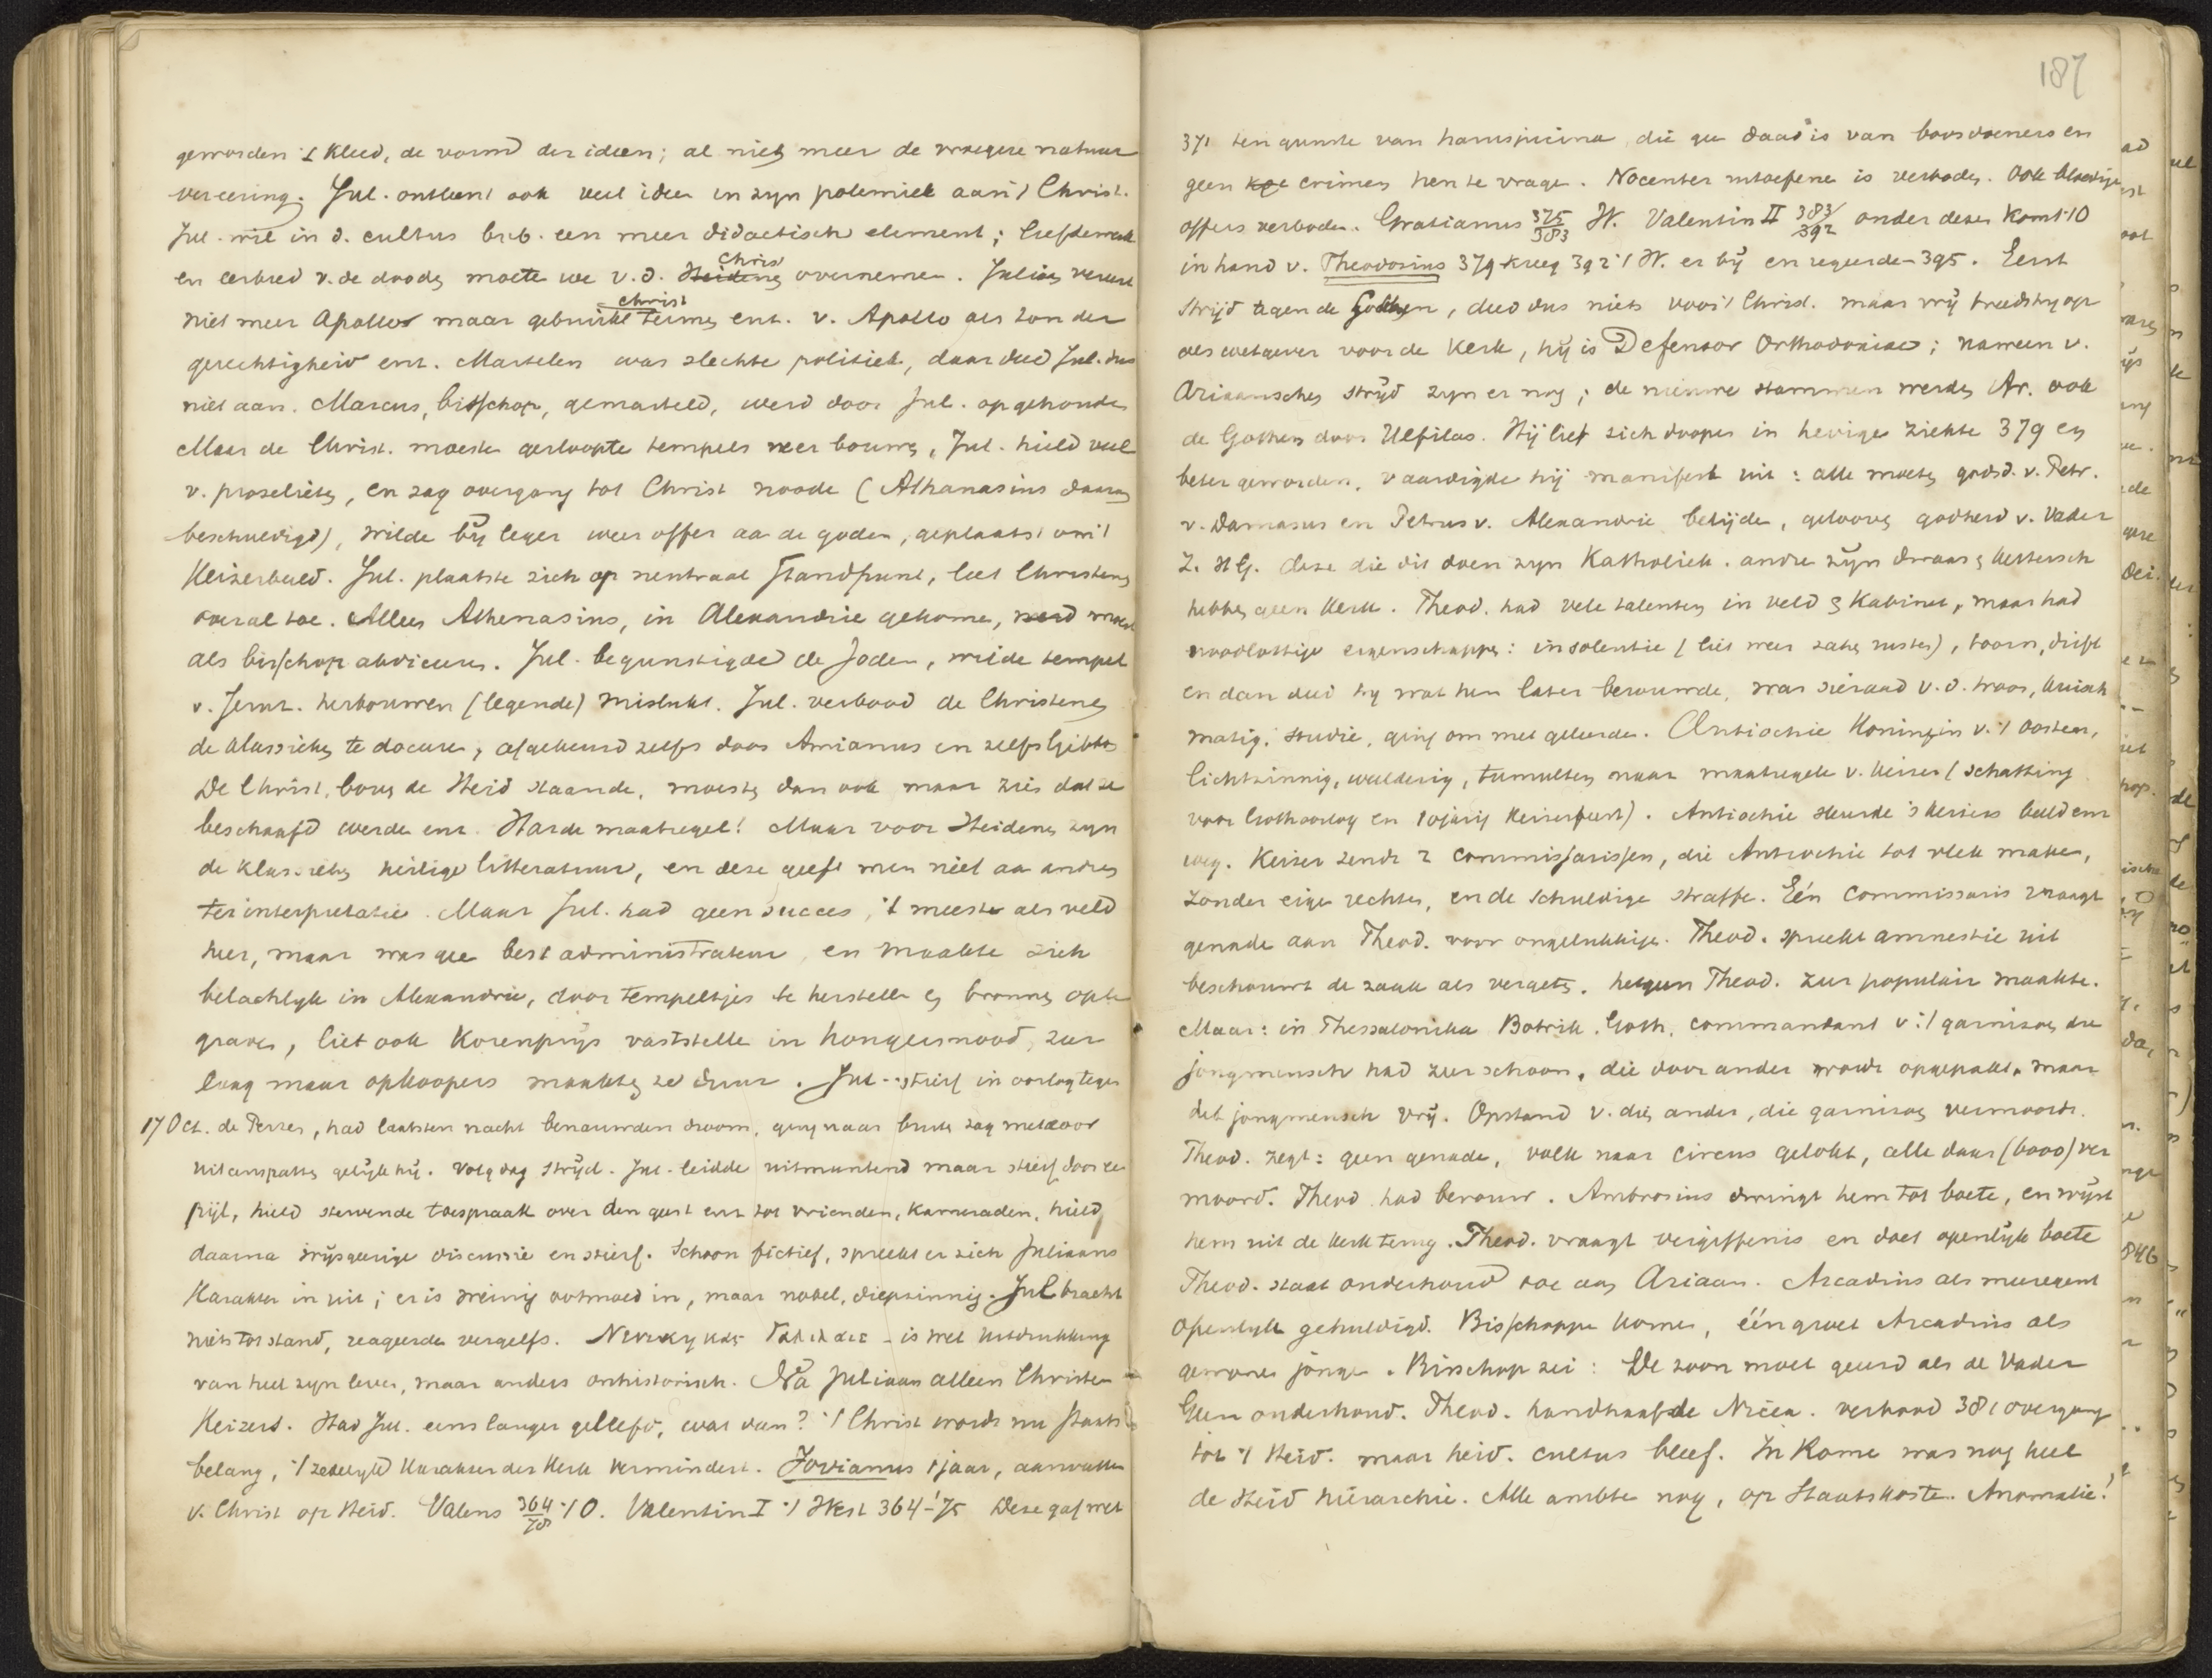 geworden 't kleed, de vorm der ideen; al niet meer de vroegere natuur
vereering. Jul. ontleent ook veel ideen in zyn polemiek aan 't Christ.
Jul. wil in d. cultus breb. een meer didactisch element; liefdewerk
en eerbied v. de doode moete we v. d. Heidene Christ overnemen. Julian vereert
niet meer Apollo maar gebruikt christ termen ent. v. Apollo als zon der
gerechtigheid ent. Martelen was slechte politiek, daar deed Jul. dus
niet aan. Marcus, bisschop, gemarteld, werd door Jul. opgehouden
Maar de Christ. moeste gesloopte tempels weer bouwen, Jul. hield veel
v. proseliete, en zag overgang tot Christ noode (Athanasius daarom
beschuldigd), wilde by leger weer offer aa de goden, geplaatst om 't
Keizerbeeld. Jul. plaatste zich op neutraal standpunt, liet Christene
overal toe. Alleen Athenasius, in Alexandrie gekome, werd moest
als bisschop abdiceere. Jul. begunstigde de Joden, wilde tempel
v. Jeruz. herbouwen (legende) mislukt. Jul. verbood de Christene
de klassieke te docere, afgekeurd zelfs door Amianus en zelfs Gibbo
De Christ. bove de Heid staande, moeste dan ook maar zien dat ze
beschaafd werde enz. Harde maatregel! Maar voor Heidene zyn
de klassieke heilige litteratuur, en deze geeft men niet aa andre
ter interpretatie. Maar Jul. had geen succes, 't meeste als veld
heer, maar was gee best administrateur, en maakte zich
belachlyk in Alexandrie, door tempeltjes te herstelle en bronne op te
graven, liet ook korenprys vaststelle in hongersnood, zeer
laag maar opkoopers maakte ze duur. Jul. stierf in oorlog tegen
17 Oct. de Perzen, had laatsten nacht benauwden droom, ging naar buite zag meteoor
uiteenspatte gelyk hy. Volg dag stryd. Jul. leidde uitmuntend maar stierf door ee
pijl, hield stervende toespraak over den geest enz tot vrienden, kameraden, hield
daarna wysgeerige discussie en stierf. Schoon fictief, spreekt er zich Juliaans
karakter in uit; er is weinig ootmoed in, maar nobel, diepzinnig. Jul bracht
niets tot stand, reageerde vergeefs. Νενικηκας Γαλιλαιε - is wel uitdrukking
van heel zyn leven, maar anders onhistorisch. Na Juliaan alleen Christen
Keizers. Had Jul. eens langer geleefd, wat dan? 't Christ wordt nu staats
belang, 't zedelyk karakter der kerk vermindert. Jovianus 1 jaar, aanvallen
v. Christ op Heid. Valens 364/78 't O. Valentin I 't West 364-'75 Deze gaf wet
187
371 ten gunste van haruspicina die gee daad is van boosdoeners en
geen crimen hen te vrage. Nocenter uitoefene is verbode. Ook bloedige
offers verbode. Gratianus 375/383 W. Valentin II 383/392 onder dezen komt 't O
in hand v. Theodosius 379 kreeg 392 't W. er by en regeerde - 395. Eerst
stryd tegen de Gothen, deed dus niets voor 't Christ. maar vry treedt hy op
als wetgever voor de kerk, hy is Defensor Orthodoxiae; naween v.
Ariaansche stryd zyn er nog; de nieuwe stammen werde Ar. ook
de Gothen door Ulfilas. Hij liet zich doopen in hevige ziekte 379 en
beter geworden, vaardigde hij manifest uit: alle moete godsd. v. Petr.
v. Damasus en Petrus v. Alexandrie belijde, geloove godheid v. Vader
Z. H G. Deze die dit doen zyn Katholiek. andre zyn dwaas & kettersch
hebbe geen kerk. Theod. had vele talenten in veld & kabinet, maar had
noodlottige eigenschappe: insolentie (liet weer zake ruste), toorn, drift
en dan deed hy wat hem later berouwde, was sieraad v. d. troon, kuisch
matig. studie, ging om met geleerde. Antiochie koningin v. 't Oosten,
lichtzinnig, weelderig, tumulten naar maatregele v. keizer (schatting
voor Gothoorlog en 10jarig keizerfeest). Antiochie sleurde 's keizers beeld enz
weg. Keizer zendt 2 commissarissen, die Antiochie tot vlek make,
zonder eige rechten, en de schuldige straffe. Eén commissaris vraagt
genade aan Theod. voor ongelukkige. Theod. spreekt amnestie uit
beschouwt de zaak als vergete. hetgeen Theod. zeer populair maakte.
Maar: in Thessalonika Botrik. Goth. commandant v. 't garnizoen die
jongmensch had zeer schoon, die door ander wordt opgepakt. maar
dit jongmensch vry. Opstand v. die ander, die garnizoen vermoordt.
Theod. zegt: geen genade, volk naar circus gelokt, alle daar (6000) ver
moord. Theod had berouw. Ambrosius dwingt hem tot boete, en wyst
hem uit de kerk terug. Theod. vraagt vergiffenis en doet openlijk boete
Theod. staat onderhoud toe aan Ariaan. Arcadius als meeregent
openlyk gehuldigd. Bisschoppe kome, één groet Arcadius als
gewone jonge. Bisschop zei: De zoon moet geeerd als de Vader
Geen onderhoud. Theod. handhaafde Nicea. verbood 381 overgang
tot 't Heid. maar heid. cultus bleef. In Rome was nog heel
de Heid hierarchie. Alle ambte nog, op Staatskoste. Anomalie!